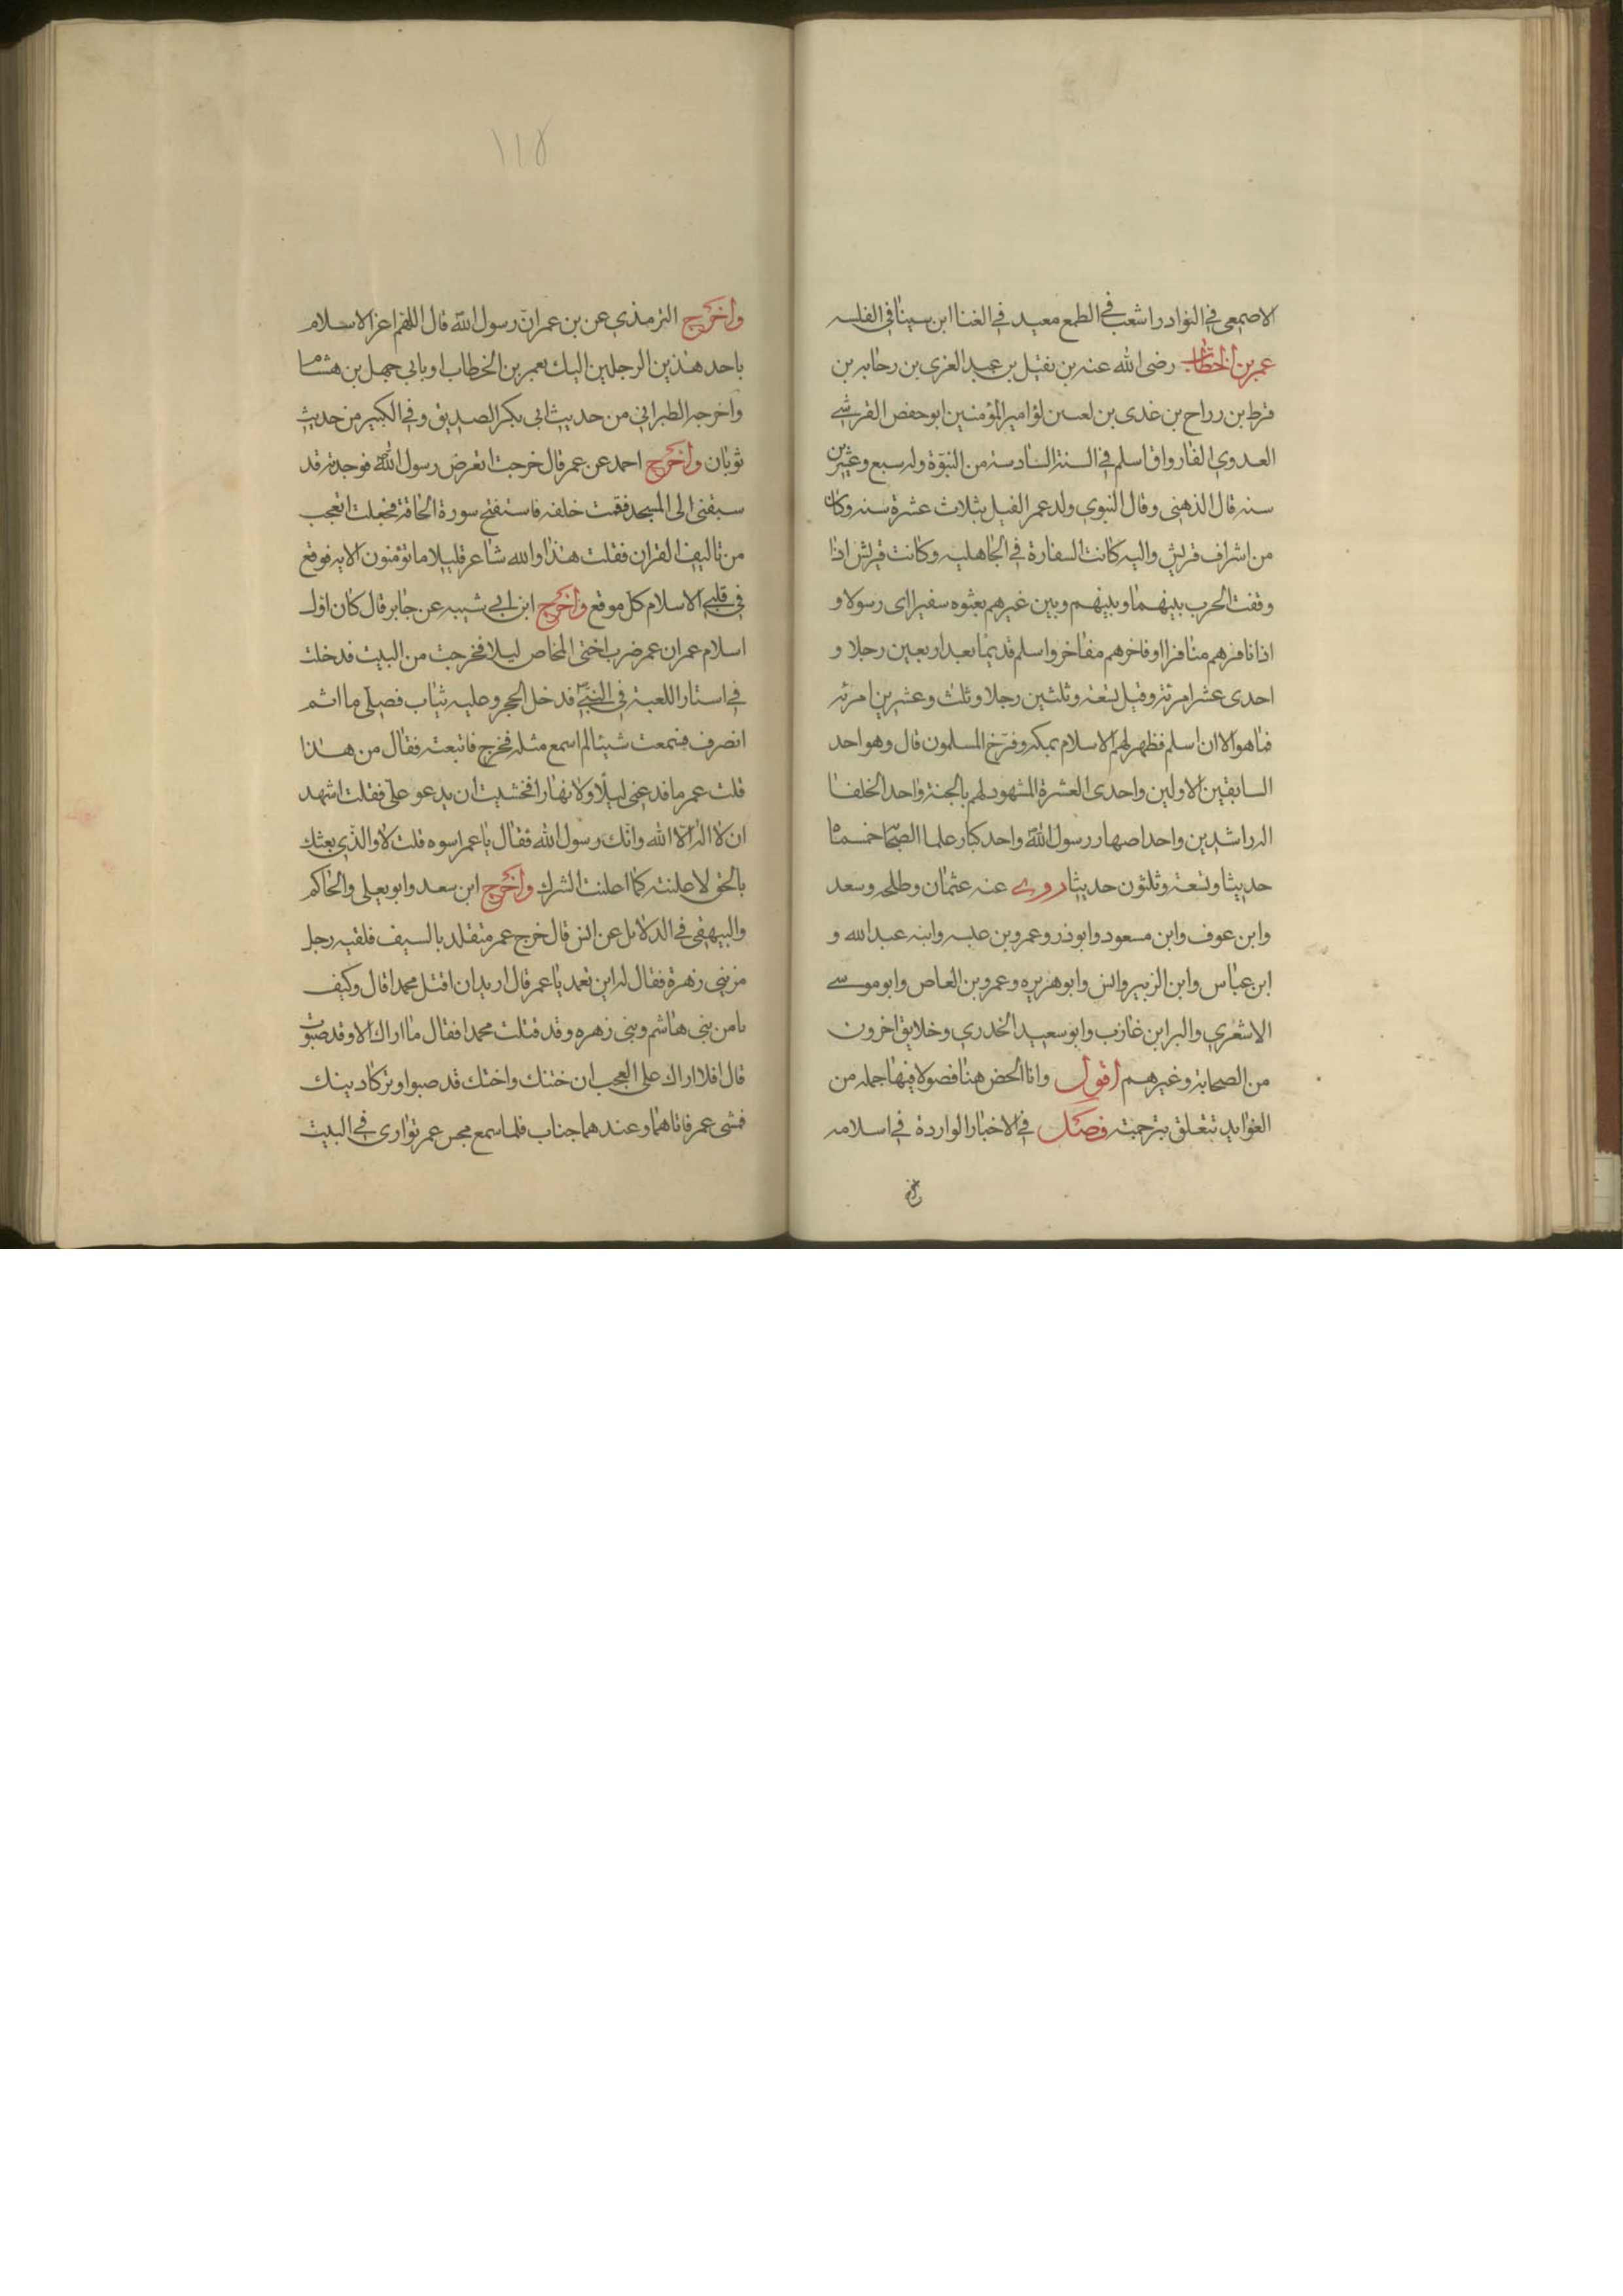 الاصمعي في النوادر اشعب في الطمع معبد في الغنا ابن سينا في الفلسه
عمر بن الخطاب رضى الله عنه بن نفيل بن عبد العزى بن رحابه بن
قرط بن رزاح بن غدى بن لعب بن لؤ امير المؤمنين ابو حفص القرشي
العدوي الفارواق اسلم في السنة السادسة من النبوة وله سبع وعشرين
سنه قال الذهبى وقال النبوي ولد عمر الفيل بثلاث عشرة سنه وكان
من اشراف قريش واليه كانت السفارة في الجاهليه وكانت قريش اذا
وقفت الحرب بينهما وبينهم وبين غيرهم بعثوه سفيرا اى رسولا و
اذا نافرهم منافرا او فاخرهم مفاخر واسلم قديما بعد اربعين رجلا و
احدى عشر امرئة وقيل تسعة وثلثين رجلا وثلث وعشرين امرئه
فما هو الا ان اسلم فظهر لهم الاسلام بمكه وفرّح المسلمون قال وهو احد
السابقين الاولين واحدى العشرة المشهود لهم بالجنة واحد الخلفا
الراشدين واحد اصهار رسول الله واحد كبار علما الصحابه خمسماه
حديثا وتسعة وثلثون حديثا روى عنه عثمان وطلحه وسعد
وابن عوف وابن مسعود وابوذر وعمرو بن عبسه وابنه عبد الله و
ابن عباس وابن الزبير وانس وابو هريره وعمرو بن العاص وابو موسى
الاشعري والبرا بن غازب وابو سعيد الخدري وخلايق اخرون
من الصحابة وغيرهم اقول وانا الخص هنا فصولا فيها جمله من
الفوايد تتعلق بترجمته فصل في الاخبار الواردة في اسلامه
واخرج
١١٨
واخرج الترمذي عن بن عمر انّ رسول الله قال اللهم اعز الاسلام
باحد هذين الرجلين اليك بعمر بن الخطاب او بابي جهل بن هشام
واخرجه الطبراني من حديث ابى بكر الصديق وفي الكبير من حديث
ثوبان واخرج احمد عن عمر قال خرجت اتعرض رسول الله فوجدته قد
سبقنى الى المسجد فقمت خلفه فاستفتح سورة الحاقة فجعلت اتعجب
من تاليف القران فقلت هذا والله شاعر قليلا ما تؤمنون الايه فوقع
في قلبى الاسلام كل موقع واخرج ابن ابى شيبه عن جابر قال كان اول
اسلام عمر ان عمر ضرب اختى المخاص ليلا فخرجت من البيت فدخلت
في استار اللعبة في النبي فدخل الحجر وعليه ثياب فصلى ما اثم
انصرف فسمعت شيئا لم اسمع مثله فخرج فاتبعته فقال من هذا
قلت عمر ما فدعنى ليلا ولا نهارا فخشيت ان يدعو على فقلت اشهد
ان لا اله الا الله وانّك رسول الله فقال يا عمر اسوه قلت لا والذي بعثك
بالحق لاعلنته كما اعلنت الشرك واخرج ابن سعد وابو يعلى والحاكم
والبيهقى في الدلايل عن انس قال خرج عمر متقلد بالسيف فلقيه رجل
من بني زهرة فقال له اين تعمد يا عمر قال اريد ان اقتل محمدا قال وكيف
تامن بنى هاشم وبنى زهره وقد قتلت محمدا فقال ما اراك الا وقد صبوت
قال افلا اراك على العجب ان ختنك واختك قد صبوا وتركا دينك
فمشى عمر فاتاهما وعندهما جناب فلما سمع مجس عمر توارى في البيت